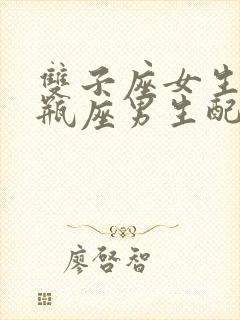 雙子座女生
瓶座男生配
廖啓智